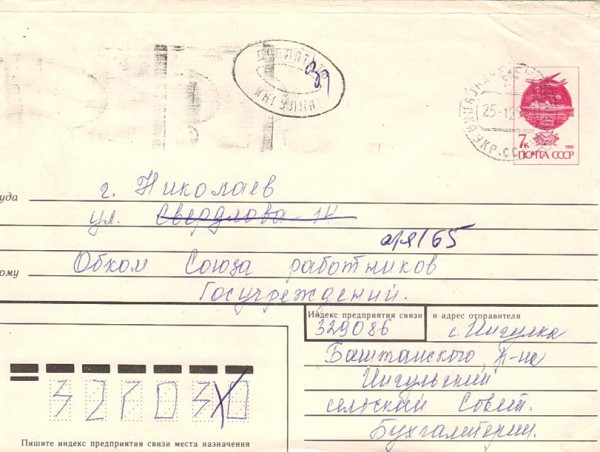 25-12
7к
ПОЧТА СССР
г. Николаев
уда
ул. Свердлова
а/я 65
ому
Обком Союза работников
Госучреждений.
Индекс предприятия связи и адрес отправителя
329086 с. Ингулка
Баштанского р-на
Ингульский
сельский Совет.
Бухгалтерии.
Пишите индекс предприятия связи места назначения